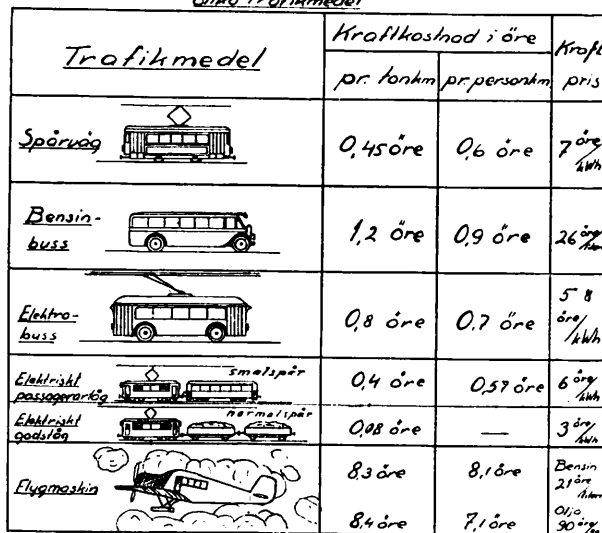 olika Trafikmedel
Trafikmedel
Kraftkostnad i öre
Kraft
pr. tonkm pr. personkm pris
Spårväg 0,45 öre 0,6 öre 7 öre/kWh
Bensin-
buss 1,2 öre 0,9 öre 26 öre/liter
Elektro-
buss 0,8 öre 0,7 öre 5 8 öre/kWh
smalspår
Elektriskt
passagerartåg 0,4 öre 0,57 öre 6 öre/kWh
normalspår
Elektriskt
godståg 0,08 öre — 3 öre/kWh
Flygmaskin 8,3 öre 8,1 öre Bensin
21 öre/liter
8,4 öre 7,1 öre Olja
90 öre